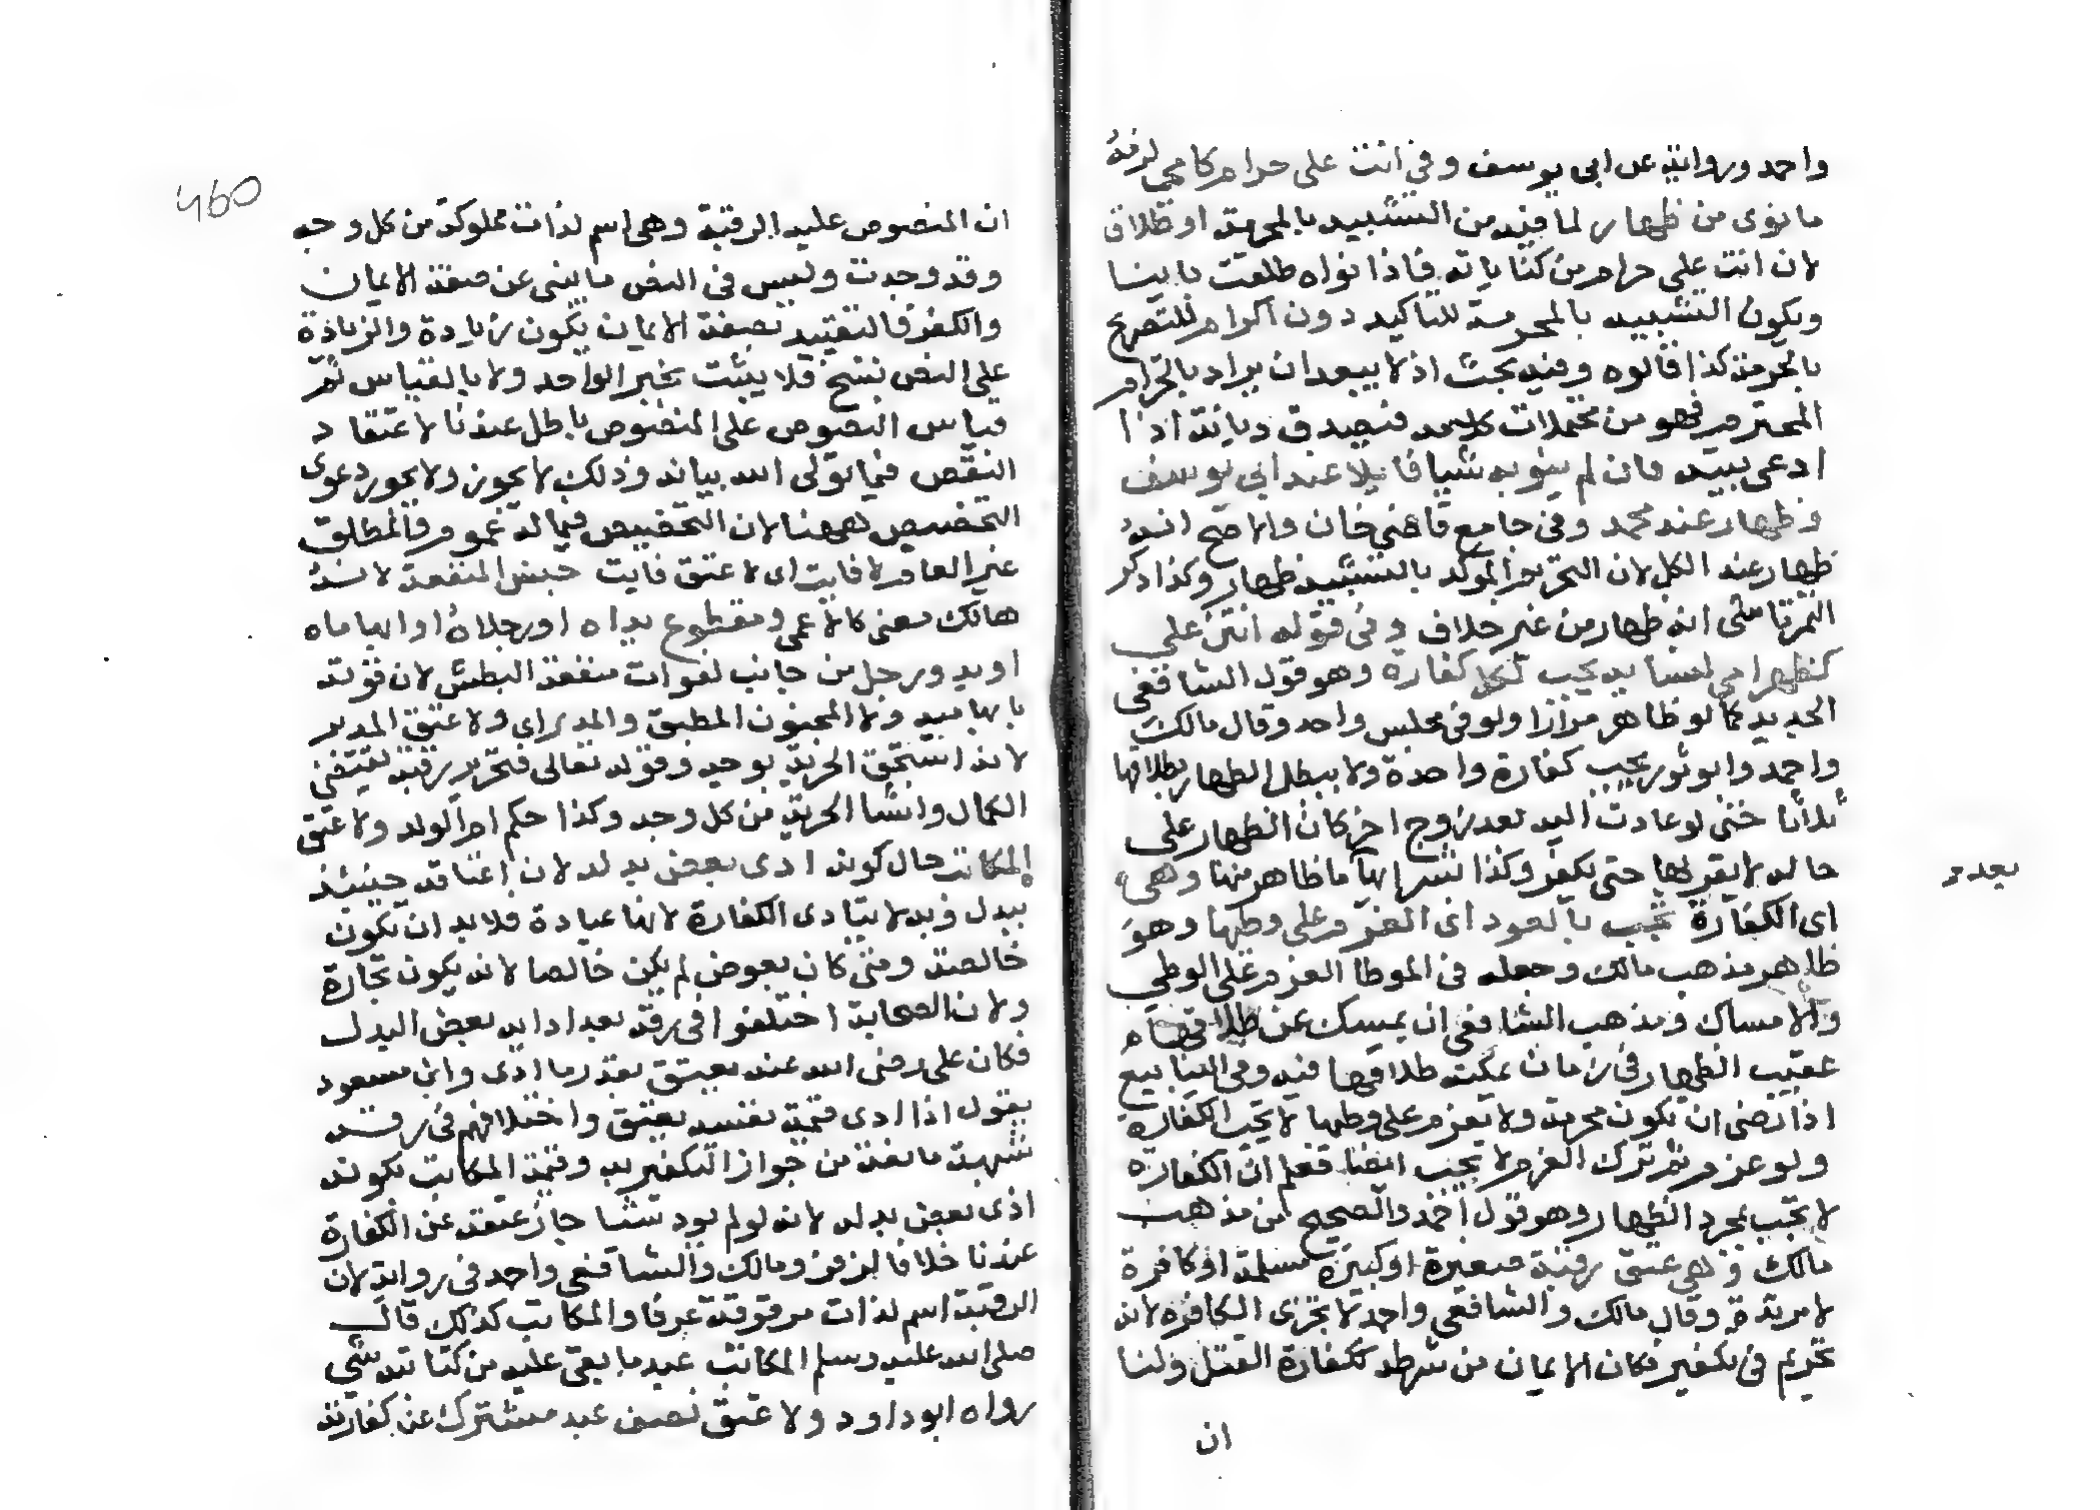 واحمد ورواية عن ابى يوسف وفي انت على حرام كامي لزمه
ما نوى من ظهار لما فيه من التشبيه بالمحرمة او طلاق
لان انت على حرام من كناياته فاذا نواه طلقت باينا
ويكون التشبيه بالمحرمة للتاكيد دون اكرام للتصريح
بالحرمة كذا قالوه وفيه بحث اذ لا يبعد ان يراد بالحرام
المحترم فهو من محتملات فيصدق ديانة اذا
ادعى نيته فان لم ينو به شيا فايلا عند ابى يوسف
وظهار عند محمد وفى جامع قاضي خان والاصح انه
ظهار عند الكل لان التحريم المؤكد بالتشبيه ظهار وكذا ذكر
التمرتاشى انه ظهار من غير خلاف وفى قوله انتن على
كظهر امي لنسايه يجب لكل كفارة وهو قول الشافعي
الجديد كما لو ظاهر مرارا ولو فى مجلس واحد وقال مالك
واحمد وابو ثور يجب كفارة واحدة ولا يبطل الظهار بطلاقها
ثلاثا حتى لو عادت اليه بعد زوج اخر كان الظهار على
حاله لا يقربها حتى يكفر وكذا شرايها ما ظاهر منها وهى
اى الكفارة تجب بالعود اى العزم على وطيها وهو
ظاهر مذهب مالك وجعله فى الموطا العزم على الوطي
والامساك ومذهب الشافعي ان يمسك عن طلاقها
عقيب الظهار فى زمان يمكنه طلاقها فيه وفى الينابيع
اذا رضى ان تكون محرمة ولا يعزم على وطيها لا تجب الكفارة
ولو عزم ثم ترك العزم لا يجب ايضا فعلم ان الكفارة
لا تجب بمجرد الظهار وهو قول احمد والصحيح من مذهب
مالك وهي عتق رقبة صغيرة او كبيرة مسلمة او كافرة
لا مرتدة وقال مالك والشافعي واحمد لا تجزى الكافرة لانه
تحريم فى تكفير فكان الايمان من شرطه ككفارة القتل ولنا
ان
بعده
460
ان المنصوص عليه الرقبة وهى اسم لذات مملوكة من كل وجه
وقد وجدت وليس فى النص ما ينبى عن صفة الايمان
والكفر فالتقييد بصفة الايمان يكون زيادة والزيادة
على النص نسخ فلا يثبت بخبر الواحد ولا بالقياس ثم
قياس المنصوص على المنصوص باطل عندنا لاعتقاد
النقص فيما تولى الله بيانه وذلك لا يجوز ولا يجوز دعوى
التخصيص ههنا لان التخصيص فيما له عموم والمطلق
غير العام لا فايت اى لا عتق فايت جنس المنفعة لانه
هالك معنى كالاعمى ومقطوع يداه او رجلاه او ابهاماه
او يد ورجل من جانب لفوات منفعة البطش لان قوته
بابهاميه ولا المجنون المطبق والمدبر اى ولا عتق المدبر
لانه استحق الحرية بوجه وقوله تعالى فتحرير رقبة يقتضي
الكمال وانشا الحرية من كل وجه وكذا حكم ام الولد ولا عتق
المكاتب حال كونه ادى بعض بدله لان اعتاقه حينئذ
ببدل وبه لا يتادى الكفارة لانها عبادة فلا بد ان تكون
خالصة ومتى كان بعوض لم يكن خالصا لانه يكون تجارة
ولان الصحابة اختلفوا فى رقه بعد ادايه بعض البدل
فكان على رضى الله عنه يعتق بقدر ما ادى وابن مسعود
يقول اذا ادى قيمة نفسه يعتق واختلافهم فى رقه
شبهة مانعة من جواز التكفير به وقيد المكاتب بكونه
ادى بعض بدله لانه لو لم يود شيا جاز عتقه عن الكفارة
عندنا خلافا لزفر ومالك والشافعي واحمد فى رواية لان
الرقبة اسم لذات مرقوقة عرفا والمكاتب كذلك قال
صلى الله عليه وسلم المكاتب عبد ما بقى عليه من كتابته شي
رواه ابو داود ولا عتق نصف عبد مشترك عن كفارته